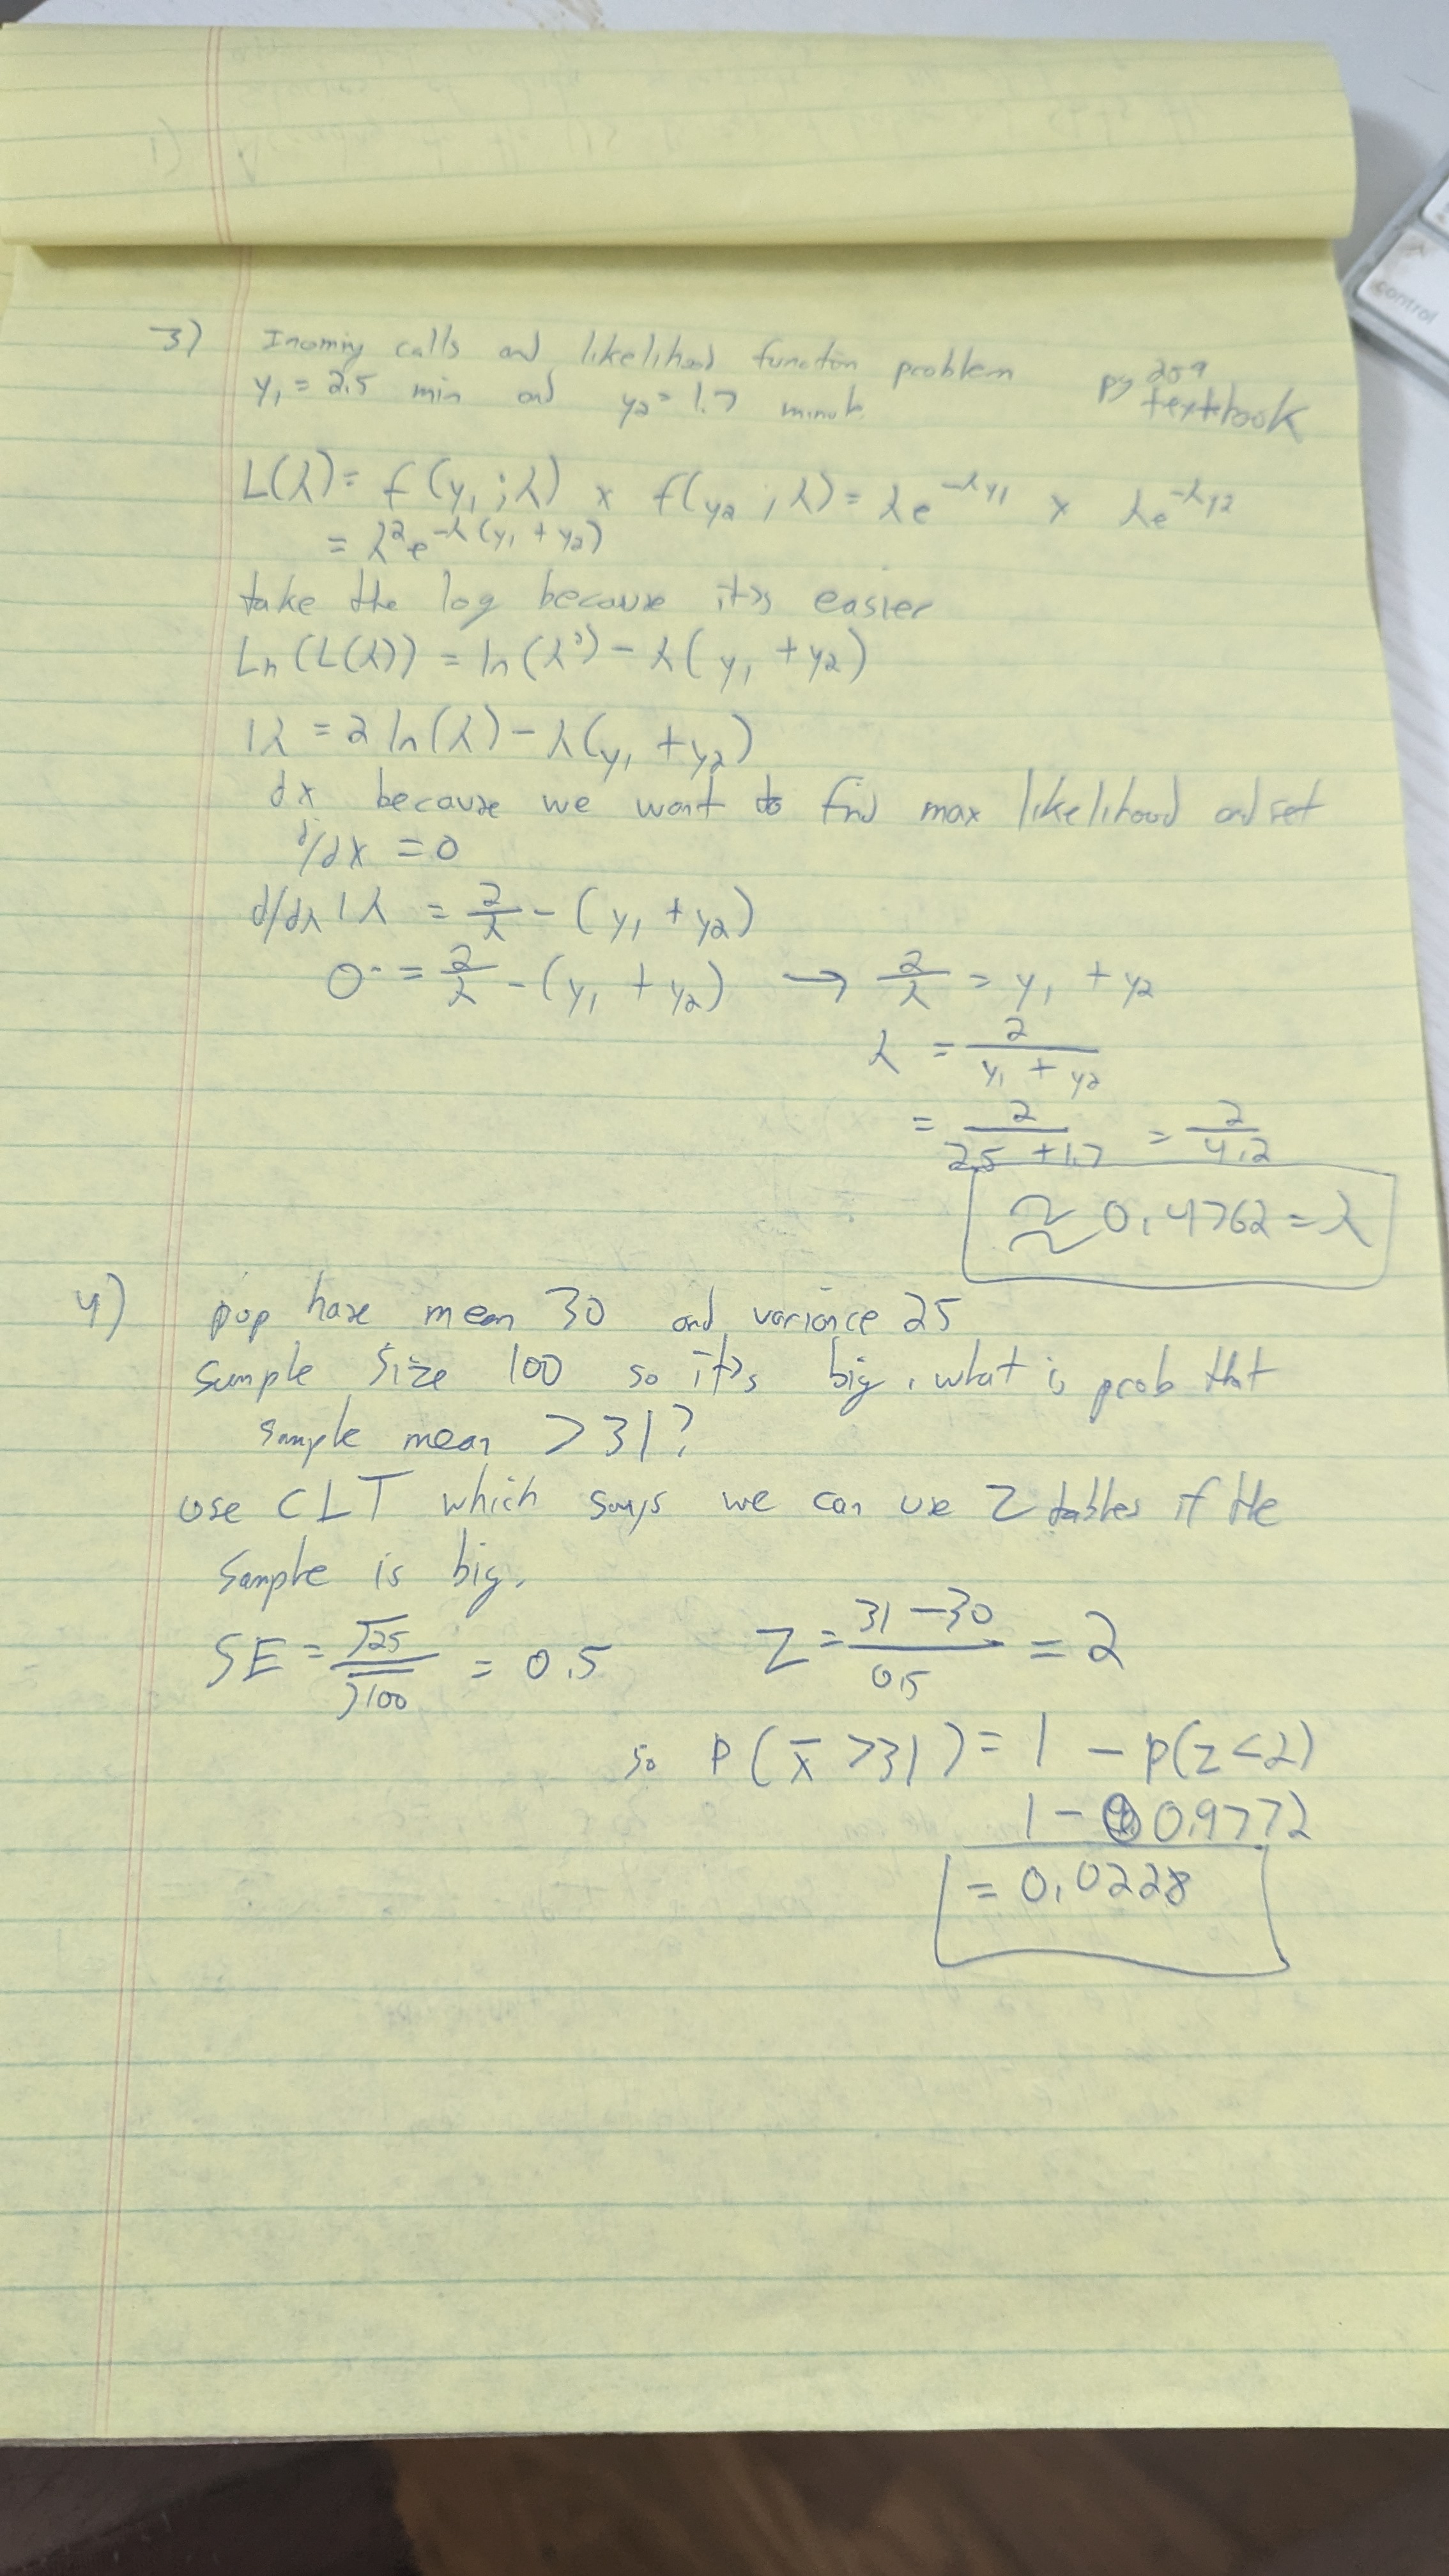 3) Incoming calls and likelihood function problem pg 259
y₁ = 2.5 min and y₂ = 1.7 minute textbook
L(λ) = f(y₁;λ) x f(y₂;λ) = λe^-λy₁ x λe^-λy₂
= λ²e^-λ(y₁ + y₂)
take the log because it's easier
Ln(L(λ)) = ln(λ²) - λ(y₁ + y₂)
lλ = 2 ln(λ) - λ(y₁ + y₂)
dx because we want to find max likelihood and set
d/dx = 0
d/dλ lλ = 2/λ - (y₁ + y₂)
0 = 2/λ - (y₁ + y₂) → 2/λ = y₁ + y₂
λ = 2/(y₁ + y₂)
= 2/(2.5 + 1.7) = 2/4.2
≈ 0.4762 = λ
4) pop have mean 30 and variance 25
Sample size 100 so it's big, what is prob that
sample mean > 31?
use CLT which says we can use Z tables if the
sample is big.
SE = √25/√100 = 0.5 Z = (31 - 30)/0.5 = 2
so P(x̄ > 31) = 1 - P(z < 2)
1 - 0.9772
= 0.0228
control